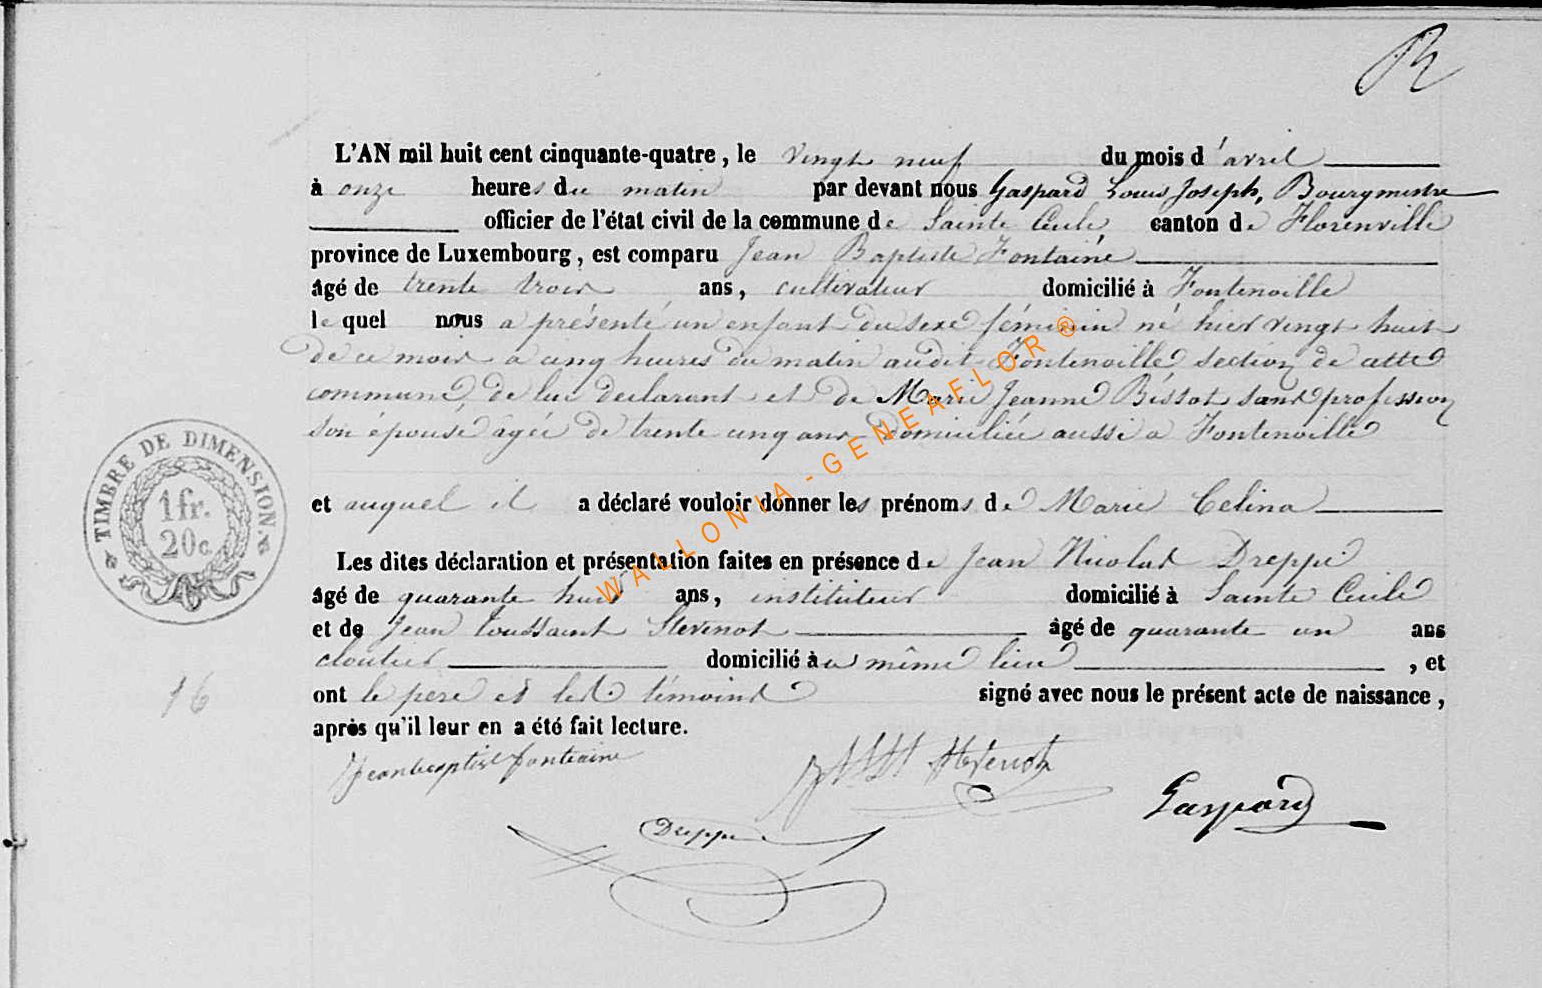 L'AN mil huit cent cinquante-quatre, le vingt neuf du mois d'avril
à onze heures du matin par devant nous Gaspard Louis Joseph, Bourgmestre
officier de l'état civil de la commune de Sainte Cécile, canton de Florenville
province de Luxembourg, est comparu Jean Baptiste Fontaine
âgé de trente trois ans, cultivateur domicilié à Fontenoille
lequel nous a présenté un enfant du sexe féminin né hier vingt huit
de ce mois a cinq heures du matin audit Fontenoille section de cette
commune, de lui declarant et de Marie Jeanne Bissot sans profession
son épouse agée de trente cinq ans domiciliée aussi a Fontenoille
et auquel il a déclaré vouloir donner les prénoms de Marie Celina
TIMBRE DE DIMENSION.
1 fr.
20 c.
Les dites déclaration et présentation faites en présence de Jean Nicolas Dreppe
âgé de quarante huit ans, instituteur domicilié à Sainte Cécile
et de Jean Toussaint Stevenot âgé de quarante un ans
cloutier domicilié au même lieu, et
ont le père et les témoins signé avec nous le présent acte de naissance,
après qu'il leur en a été fait lecture.
16
Jeanbaptist fontaine
Stevenot
Gaspard
Dreppe
WALLONIA-GENEAFLOR®